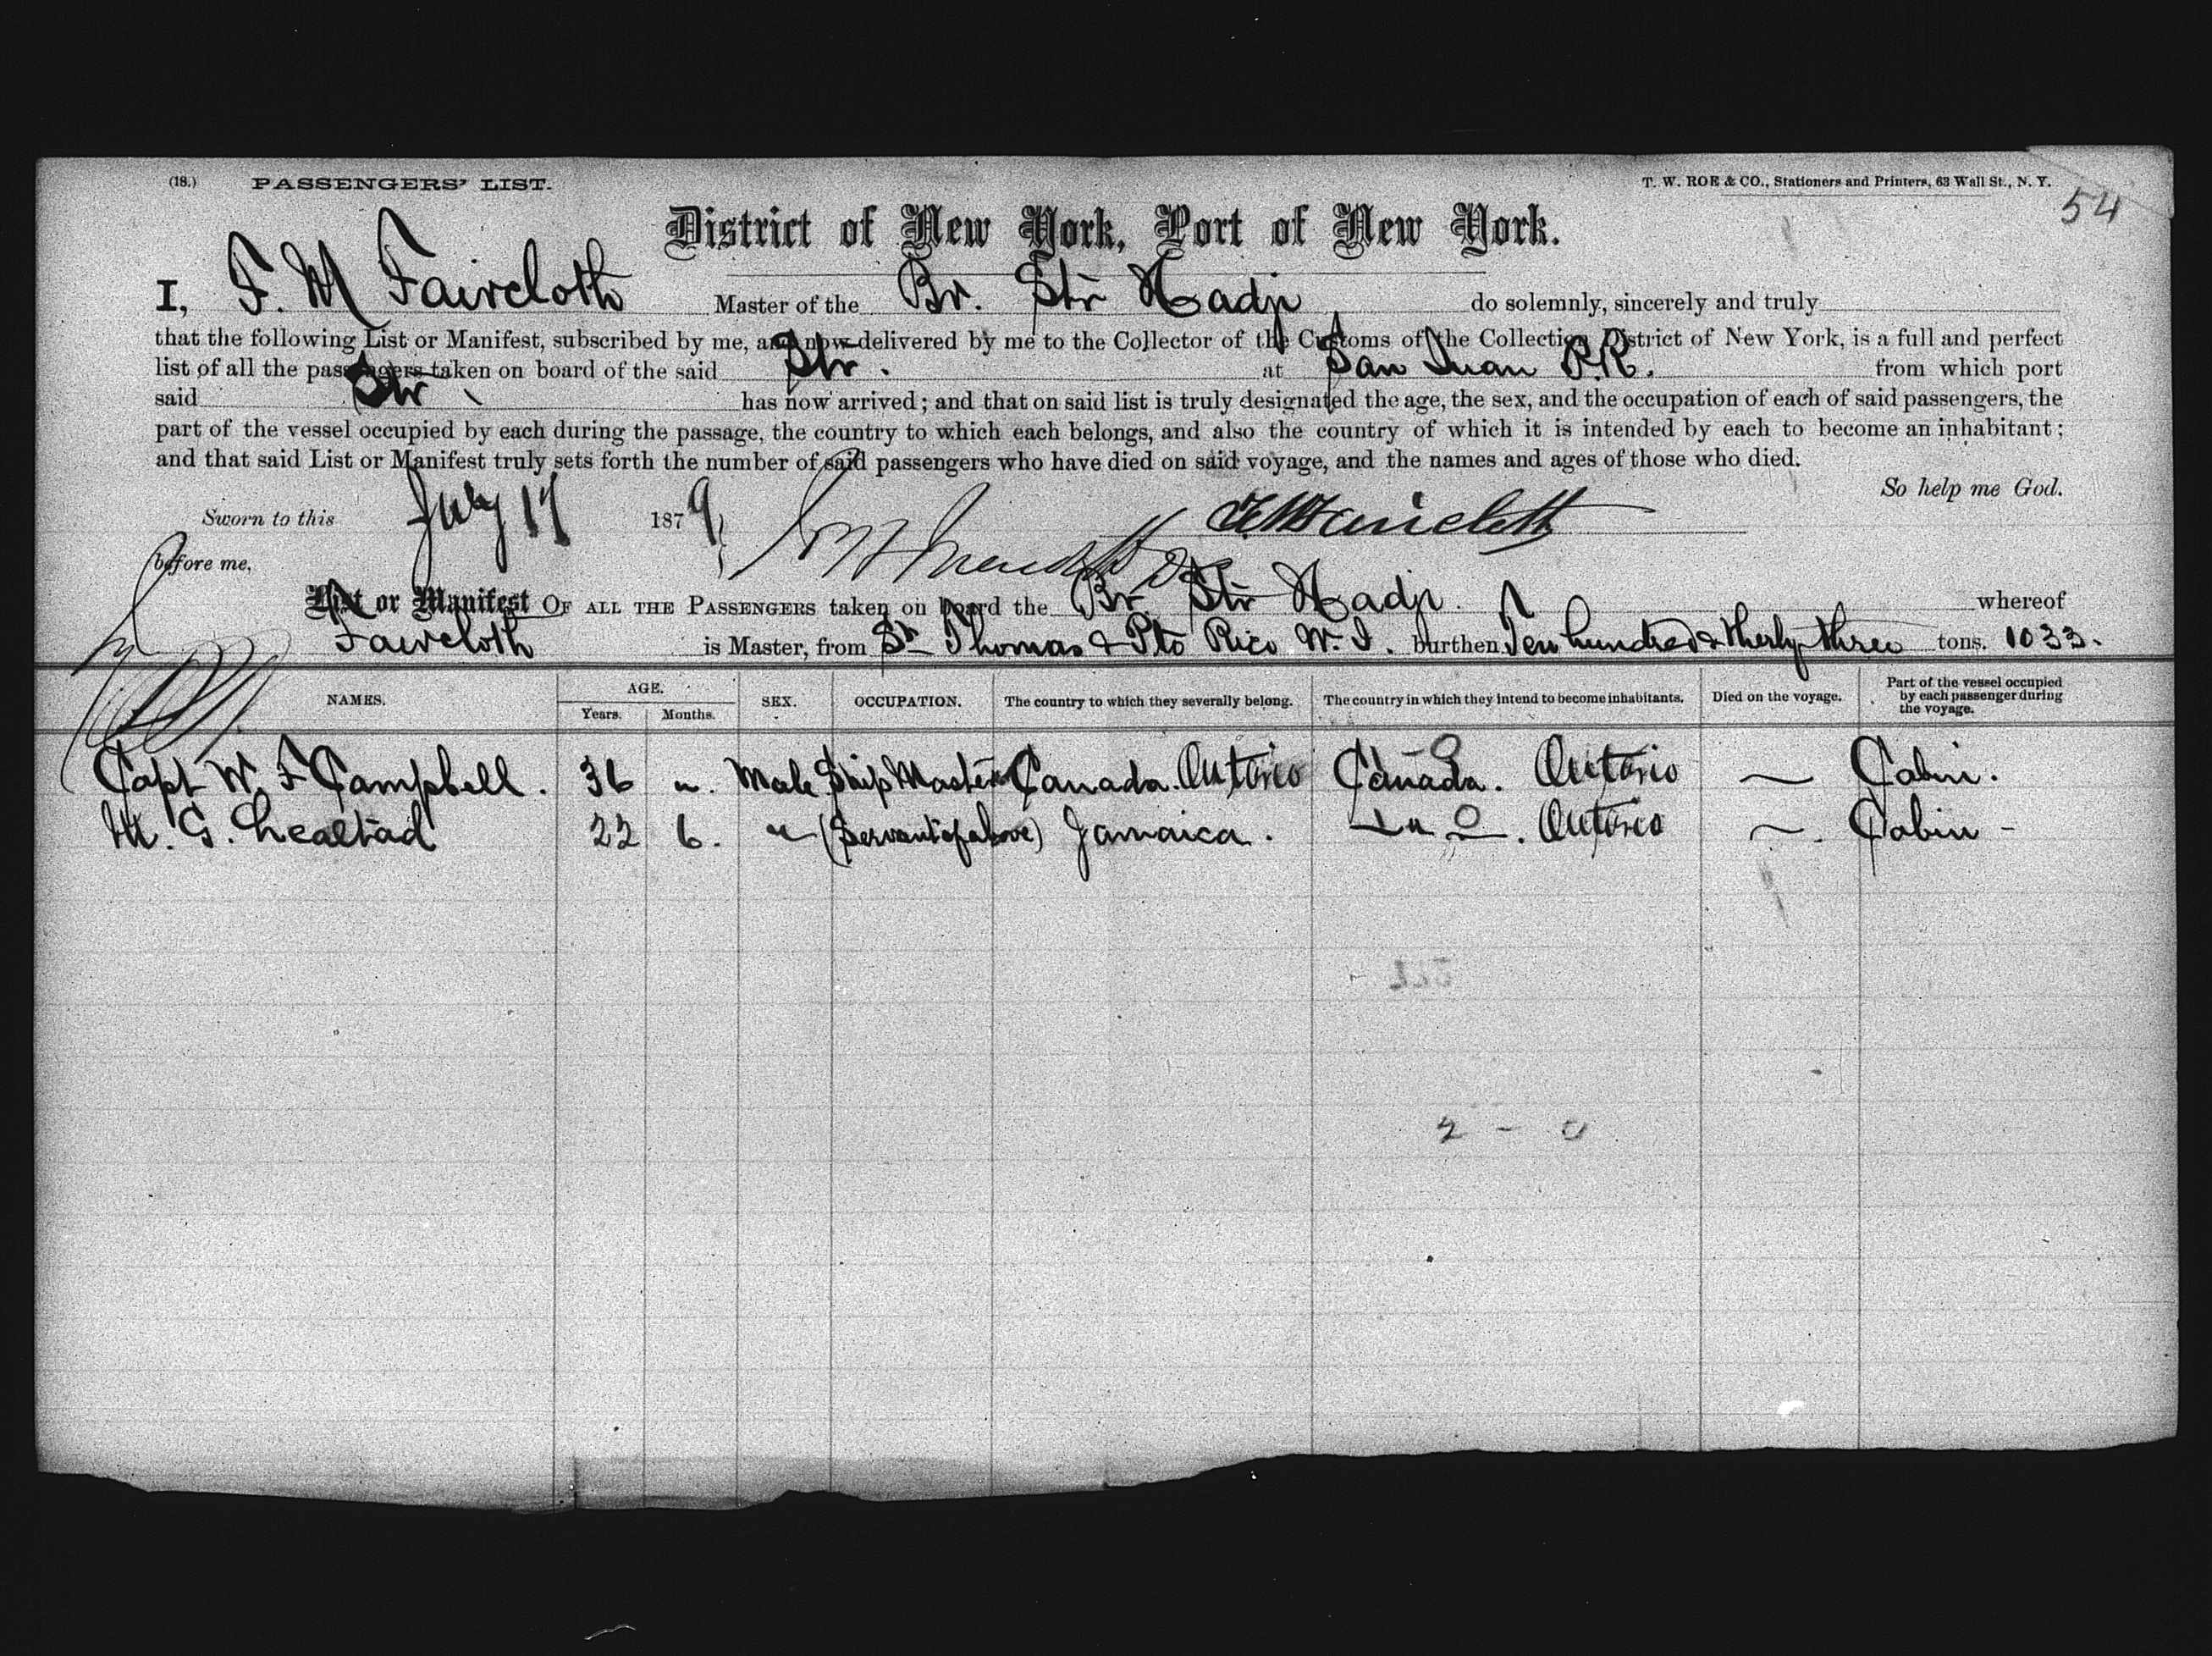 (18.) PASSENGERS' LIST. T. W. ROE & CO., Stationers and Printers, 63 Wall St., N. Y.
54
District of New York, Port of New York.
I, F. M Faircloth Master of the Br. Str Hadji do solemnly, sincerely and truly
that the following List or Manifest, subscribed by me, and now delivered by me to the Collector of the Customs of the Collection District of New York, is a full and perfect
list of all the passengers taken on board of the said Str. at San Juan P.R. from which port
said Str has now arrived; and that on said list is truly designated the age, the sex, and the occupation of each of said passengers, the
part of the vessel occupied by each during the passage, the country to which each belongs, and also the country of which it is intended by each to become an inhabitant;
and that said List or Manifest truly sets forth the number of said passengers who have died on said voyage, and the names and ages of those who died.
So help me God.
Sworn to this July 17 1879 F. M Faircloth
before me,
List or Manifest OF ALL THE PASSENGERS taken on board the Br Str Hadji whereof
Faircloth is Master, from St Thomas & Pto Rico W. I. burthen Ten hundred & thirty three tons. 1033.
NAMES. AGE. Years. Months. SEX. OCCUPATION. The country to which they severally belong. The country in which they intend to become inhabitants. Died on the voyage. Part of the vessel occupied by each passenger during the voyage.
Capt W. F Campbell. 36 „. Male Ship Master Canada. Ontario Canada. Ontario — Cabin.
M. G. Lealtad 22 6. „ (Servant of above) Jamaica. — „ —. Ontario —. Cabin -
2 - 0